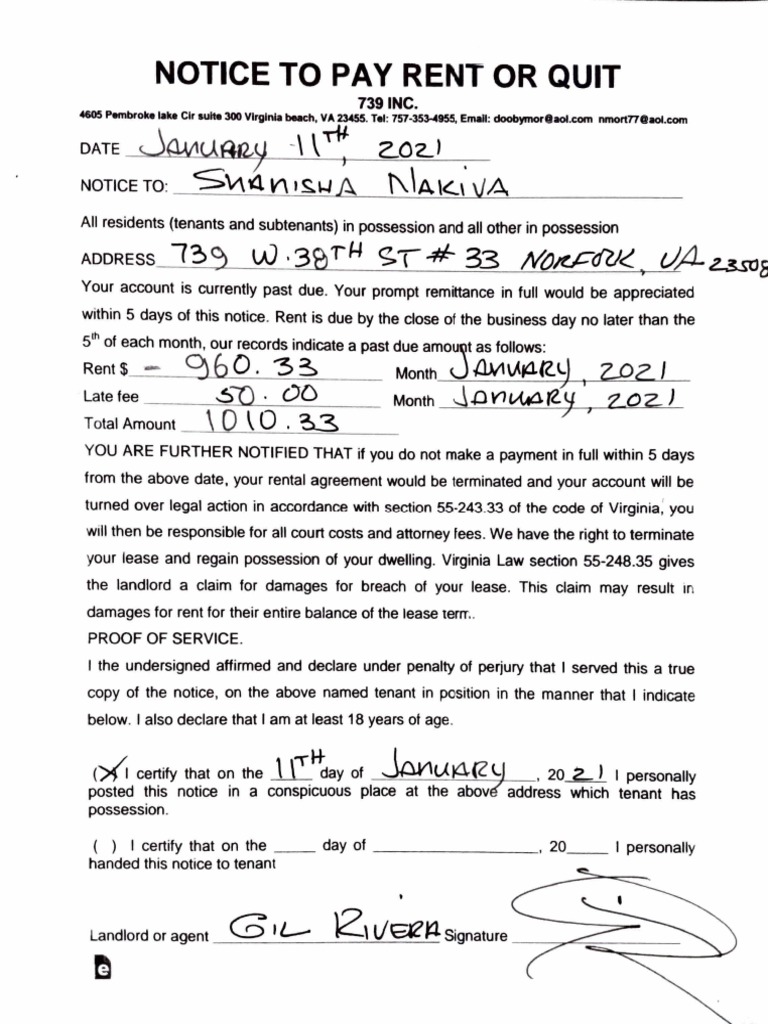 NOTICE TO PAY RENT OR QUIT
739 INC.
4605 Pembroke lake Cir suite 300 Virginia beach, VA 23455. Tel: 757-353-4955, Email: doobymor@aol.com nmort77@aol.com
DATE JANUARY 11TH, 2021
NOTICE TO: SHANISHA NAKIVA
All residents (tenants and subtenants) in possession and all other in possession
ADDRESS 739 W. 38TH ST # 33 NORFOLK, VA 23508
Your account is currently past due. Your prompt remittance in full would be appreciated
within 5 days of this notice. Rent is due by the close of the business day no later than the
5th of each month, our records indicate a past due amount as follows:
Rent $ - 960.33 Month JANUARY, 2021
Late fee 50.00 Month JANUARY, 2021
Total Amount 1010.33
YOU ARE FURTHER NOTIFIED THAT if you do not make a payment in full within 5 days
from the above date, your rental agreement would be terminated and your account will be
turned over legal action in accordance with section 55-243.33 of the code of Virginia, you
will then be responsible for all court costs and attorney fees. We have the right to terminate
your lease and regain possession of your dwelling. Virginia Law section 55-248.35 gives
the landlord a claim for damages for breach of your lease. This claim may result in
damages for rent for their entire balance of the lease term..
PROOF OF SERVICE.
I the undersigned affirmed and declare under penalty of perjury that I served this a true
copy of the notice, on the above named tenant in position in the manner that I indicate
below. I also declare that I am at least 18 years of age.
(X) I certify that on the 11TH day of JANUARY, 2021 I personally
posted this notice in a conspicuous place at the above address which tenant has
possession.
( ) I certify that on the _____ day of ____________________, 20_____ I personally
handed this notice to tenant
Landlord or agent GIL RIVERA Signature
e